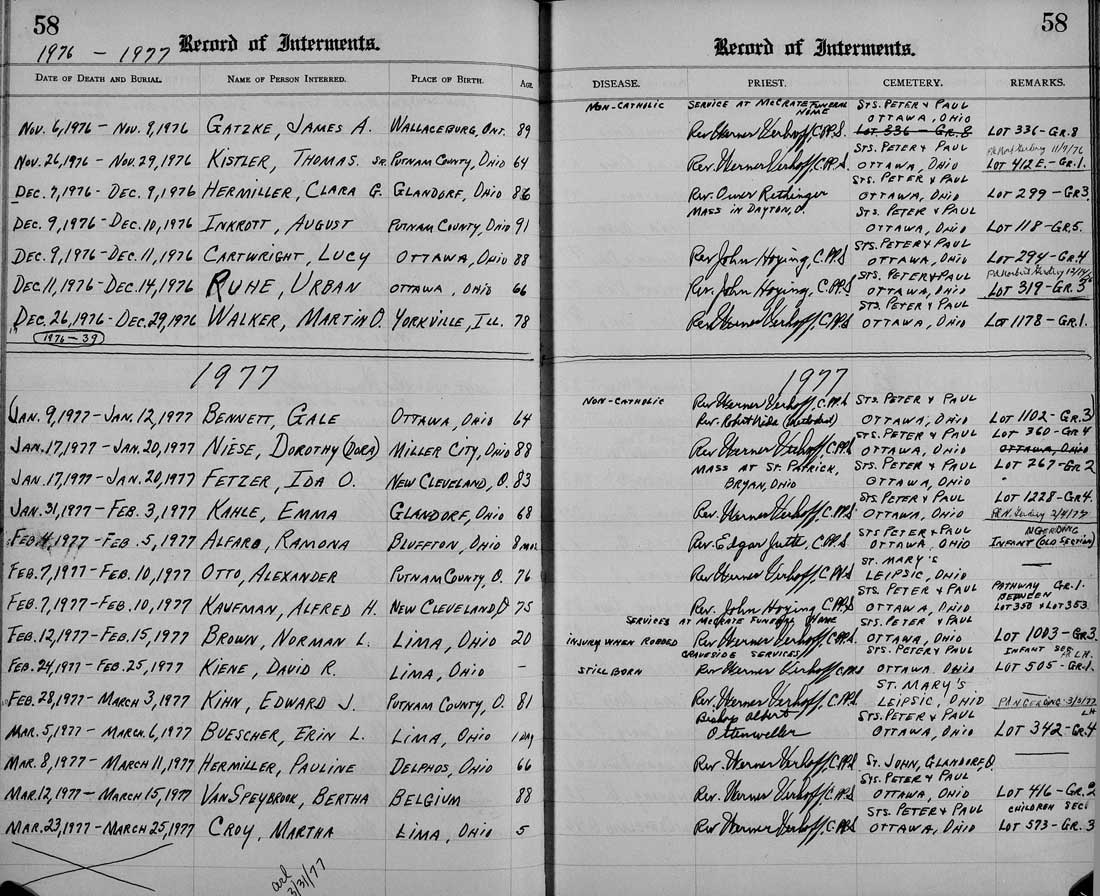 58
1976 - 1977
Record of Interments.
DATE OF DEATH AND BURIAL. NAME OF PERSON INTERRED. PLACE OF BIRTH. AGE
NOV. 6, 1976 - NOV. 9, 1976 GATZKE, JAMES A. WALLACEBURG, ONT. 89
NOV. 26, 1976 - NOV. 29, 1976 KISTLER, THOMAS. SR. PUTNAM COUNTY, OHIO 64
DEC. 7, 1976 - DEC. 9, 1976 HERMILLER, CLARA G. GLANDORF, OHIO 86
DEC. 9, 1976 - DEC. 10, 1976 INKROTT, AUGUST PUTNAM COUNTY, OHIO 91
DEC. 9, 1976 - DEC. 11, 1976 CARTWRIGHT, LUCY OTTAWA, OHIO 88
DEC. 11, 1976 - DEC. 14, 1976 RUHE, URBAN OTTAWA, OHIO 66
DEC. 26, 1976 - DEC. 29, 1976 WALKER, MARTIN O. YORKVILLE, ILL. 78
1976 - 39
1977
JAN. 9, 1977 - JAN. 12, 1977 BENNETT, GALE OTTAWA, OHIO 64
JAN. 17, 1977 - JAN. 20, 1977 NIESE, DOROTHY (DORA) MILLER CITY, OHIO 88
JAN. 17, 1977 - JAN. 20, 1977 FETZER, IDA O. NEW CLEVELAND, O. 83
JAN. 31, 1977 - FEB. 3, 1977 KAHLE, EMMA GLANDORF, OHIO 68
FEB. 4, 1977 - FEB. 5, 1977 ALFARO, RAMONA BLUFFTON, OHIO 8 mos.
FEB. 7, 1977 - FEB. 10, 1977 OTTO, ALEXANDER PUTNAM COUNTY, O. 76
FEB. 7, 1977 - FEB. 10, 1977 KAUFMAN, ALFRED H. NEW CLEVELAND O 75
FEB. 12, 1977 - FEB. 15, 1977 BROWN, NORMAN L. LIMA, OHIO 20
FEB. 24, 1977 - FEB. 25, 1977 KIENE, DAVID R. LIMA, OHIO -
FEB. 28, 1977 - MARCH 3, 1977 KIHN, EDWARD J. PUTNAM COUNTY, O. 81
MAR. 5, 1977 - MARCH 6, 1977 BUESCHER, ERIN L. LIMA, OHIO 1 DAY
MAR. 8, 1977 - MARCH 11, 1977 HERMILLER, PAULINE DELPHOS, OHIO 66
MAR. 12, 1977 - MARCH 15, 1977 VANSPEYBROOK, BERTHA BELGIUM 88
MAR. 23, 1977 - MARCH 25, 1977 CROY, MARTHA LIMA, OHIO 5
3/31/77
58
Record of Interments.
DISEASE. PRIEST. CEMETERY. REMARKS.
NON-CATHOLIC SERVICE AT McCRATE FUNERAL HOME STS. PETER & PAUL
OTTAWA, OHIO
Rev. Werner Verhoff, C.PP.S. LOT 336 - GR. 8 LOT 336 - GR. 8
STS. PETER & PAUL 11/9/76
Rev. Werner Verhoff, C.PP.S. OTTAWA, OHIO LOT 412 E. - GR. 1.
STS. PETER & PAUL
Rev. Omer Rethinger OTTAWA, OHIO LOT 299 - GR 3.
MASS IN DAYTON, O. STS. PETER & PAUL
OTTAWA, OHIO LOT 118 - GR. 5.
STS. PETER & PAUL
Rev John Hoying, C.PP.S OTTAWA, OHIO LOT 294 - GR. 4
STS. PETER & PAUL
Rev. John Hoying, C.PP.S OTTAWA, OHIO LOT 319 - GR. 3
STS. PETER & PAUL
Rev. Werner Verhoff, C.PP.S OTTAWA, OHIO LOT 1178 - GR. 1.
1977
NON-CATHOLIC Rev. Werner Verhoff, C.PP.S STS. PETER & PAUL
Rev. Robert (Methodist) OTTAWA, OHIO LOT 1102 - GR. 3
STS. PETER & PAUL LOT 360 - GR 4
Rev Werner Verhoff, C.PP.S OTTAWA, OHIO OTTAWA, OHIO
MASS AT ST. PATRICK, STS. PETER & PAUL LOT 267 - GR 2
BRYAN, OHIO OTTAWA, OHIO
STS. PETER & PAUL LOT 1228 - GR 4.
Rev. Werner Verhoff, C.PP.S OTTAWA, OHIO 2/4/77
STS PETER & PAUL N GERDING
Rev. Edgar Jutte, C.PP.S OTTAWA, OHIO INFANT (OLD SECTION)
ST. MARY'S
Rev Werner Verhoff, C.PP.S LEIPSIC, OHIO —
STS. PETER & PAUL PATHWAY GR. 1.
BETWEEN
Rev. John Hoying C.PP.S OTTAWA, OHIO LOT 350 & LOT 353
SERVICES AT McCRATE FUNERAL HOME STS. PETER & PAUL
INJURY WHEN ROBBED Rev. Werner Verhoff, C.PP.S. OTTAWA, OHIO LOT 1003 - GR. 3.
GRAVESIDE SERVICES STS. PETER & PAUL INFANT SEC.
STILL BORN Rev Werner Verhoff, C.PP.S OTTAWA, OHIO LOT 505 - GR. 1.
ST. MARY'S
Rev. Werner Verhoff, C.PP.S LEIPSIC, OHIO N GERDING 3/3/77
Bishop Albert STS. PETER & PAUL LH
Ottenweller OTTAWA, OHIO LOT 342 - GR. 4
Rev. Werner Verhoff, C.PP.S ST. JOHN, GLANDORF, O —
STS. PETER & PAUL
Rev. Werner Verhoff, C.PP.S OTTAWA, OHIO LOT 416 - GR. 2
STS. PETER & PAUL CHILDREN SEC.
Rev Werner Verhoff, C.PP.S OTTAWA, OHIO LOT 573 - GR. 3